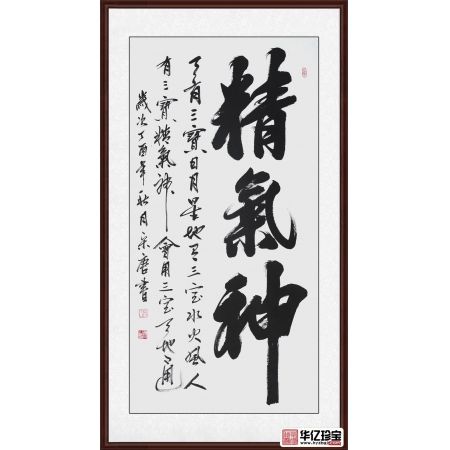 精氣神
天有三寳日月星地有三宝水火風人
有三寳精氣神會用三宝天地通
歲次丁酉年秋月采唐書
华亿珍宝
www.hyzhzb.com